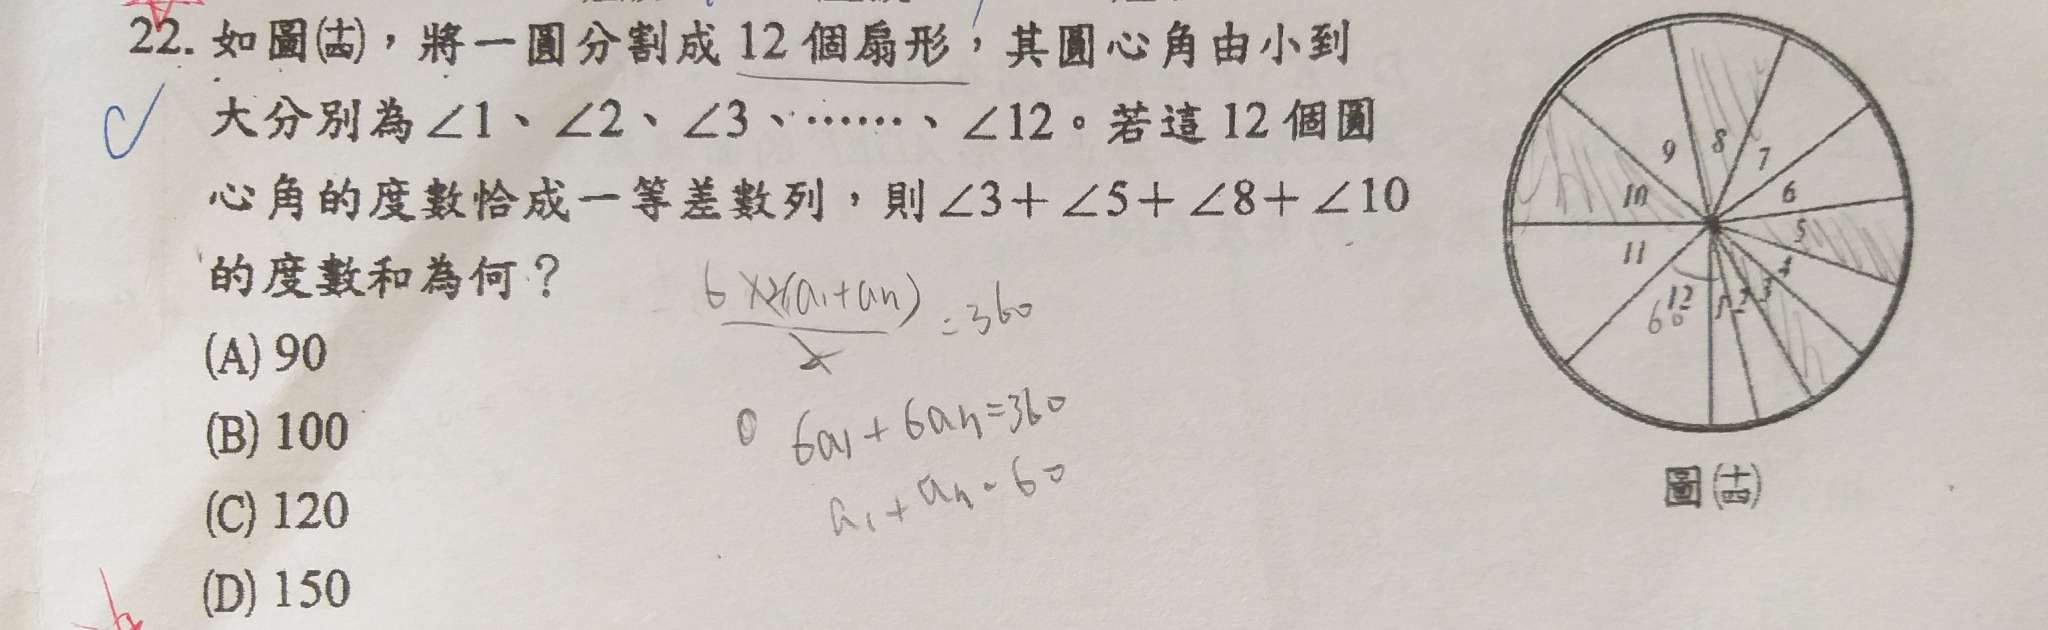 22. 如圖(十四)，將一圓分割成 12 個扇形，其圓心角由小到
大分別為∠1、∠2、∠3、……、∠12。若這 12 個圓
心角的度數恰成一等差數列，則∠3＋∠5＋∠8＋∠10
的度數和為何？
(A) 90
(B) 100
(C) 120
(D) 150
=360
6a₁+6an=360
a₁+an=60
8
9
7
10
6
5
11
4
12
1
2
3
60
圖(十四)